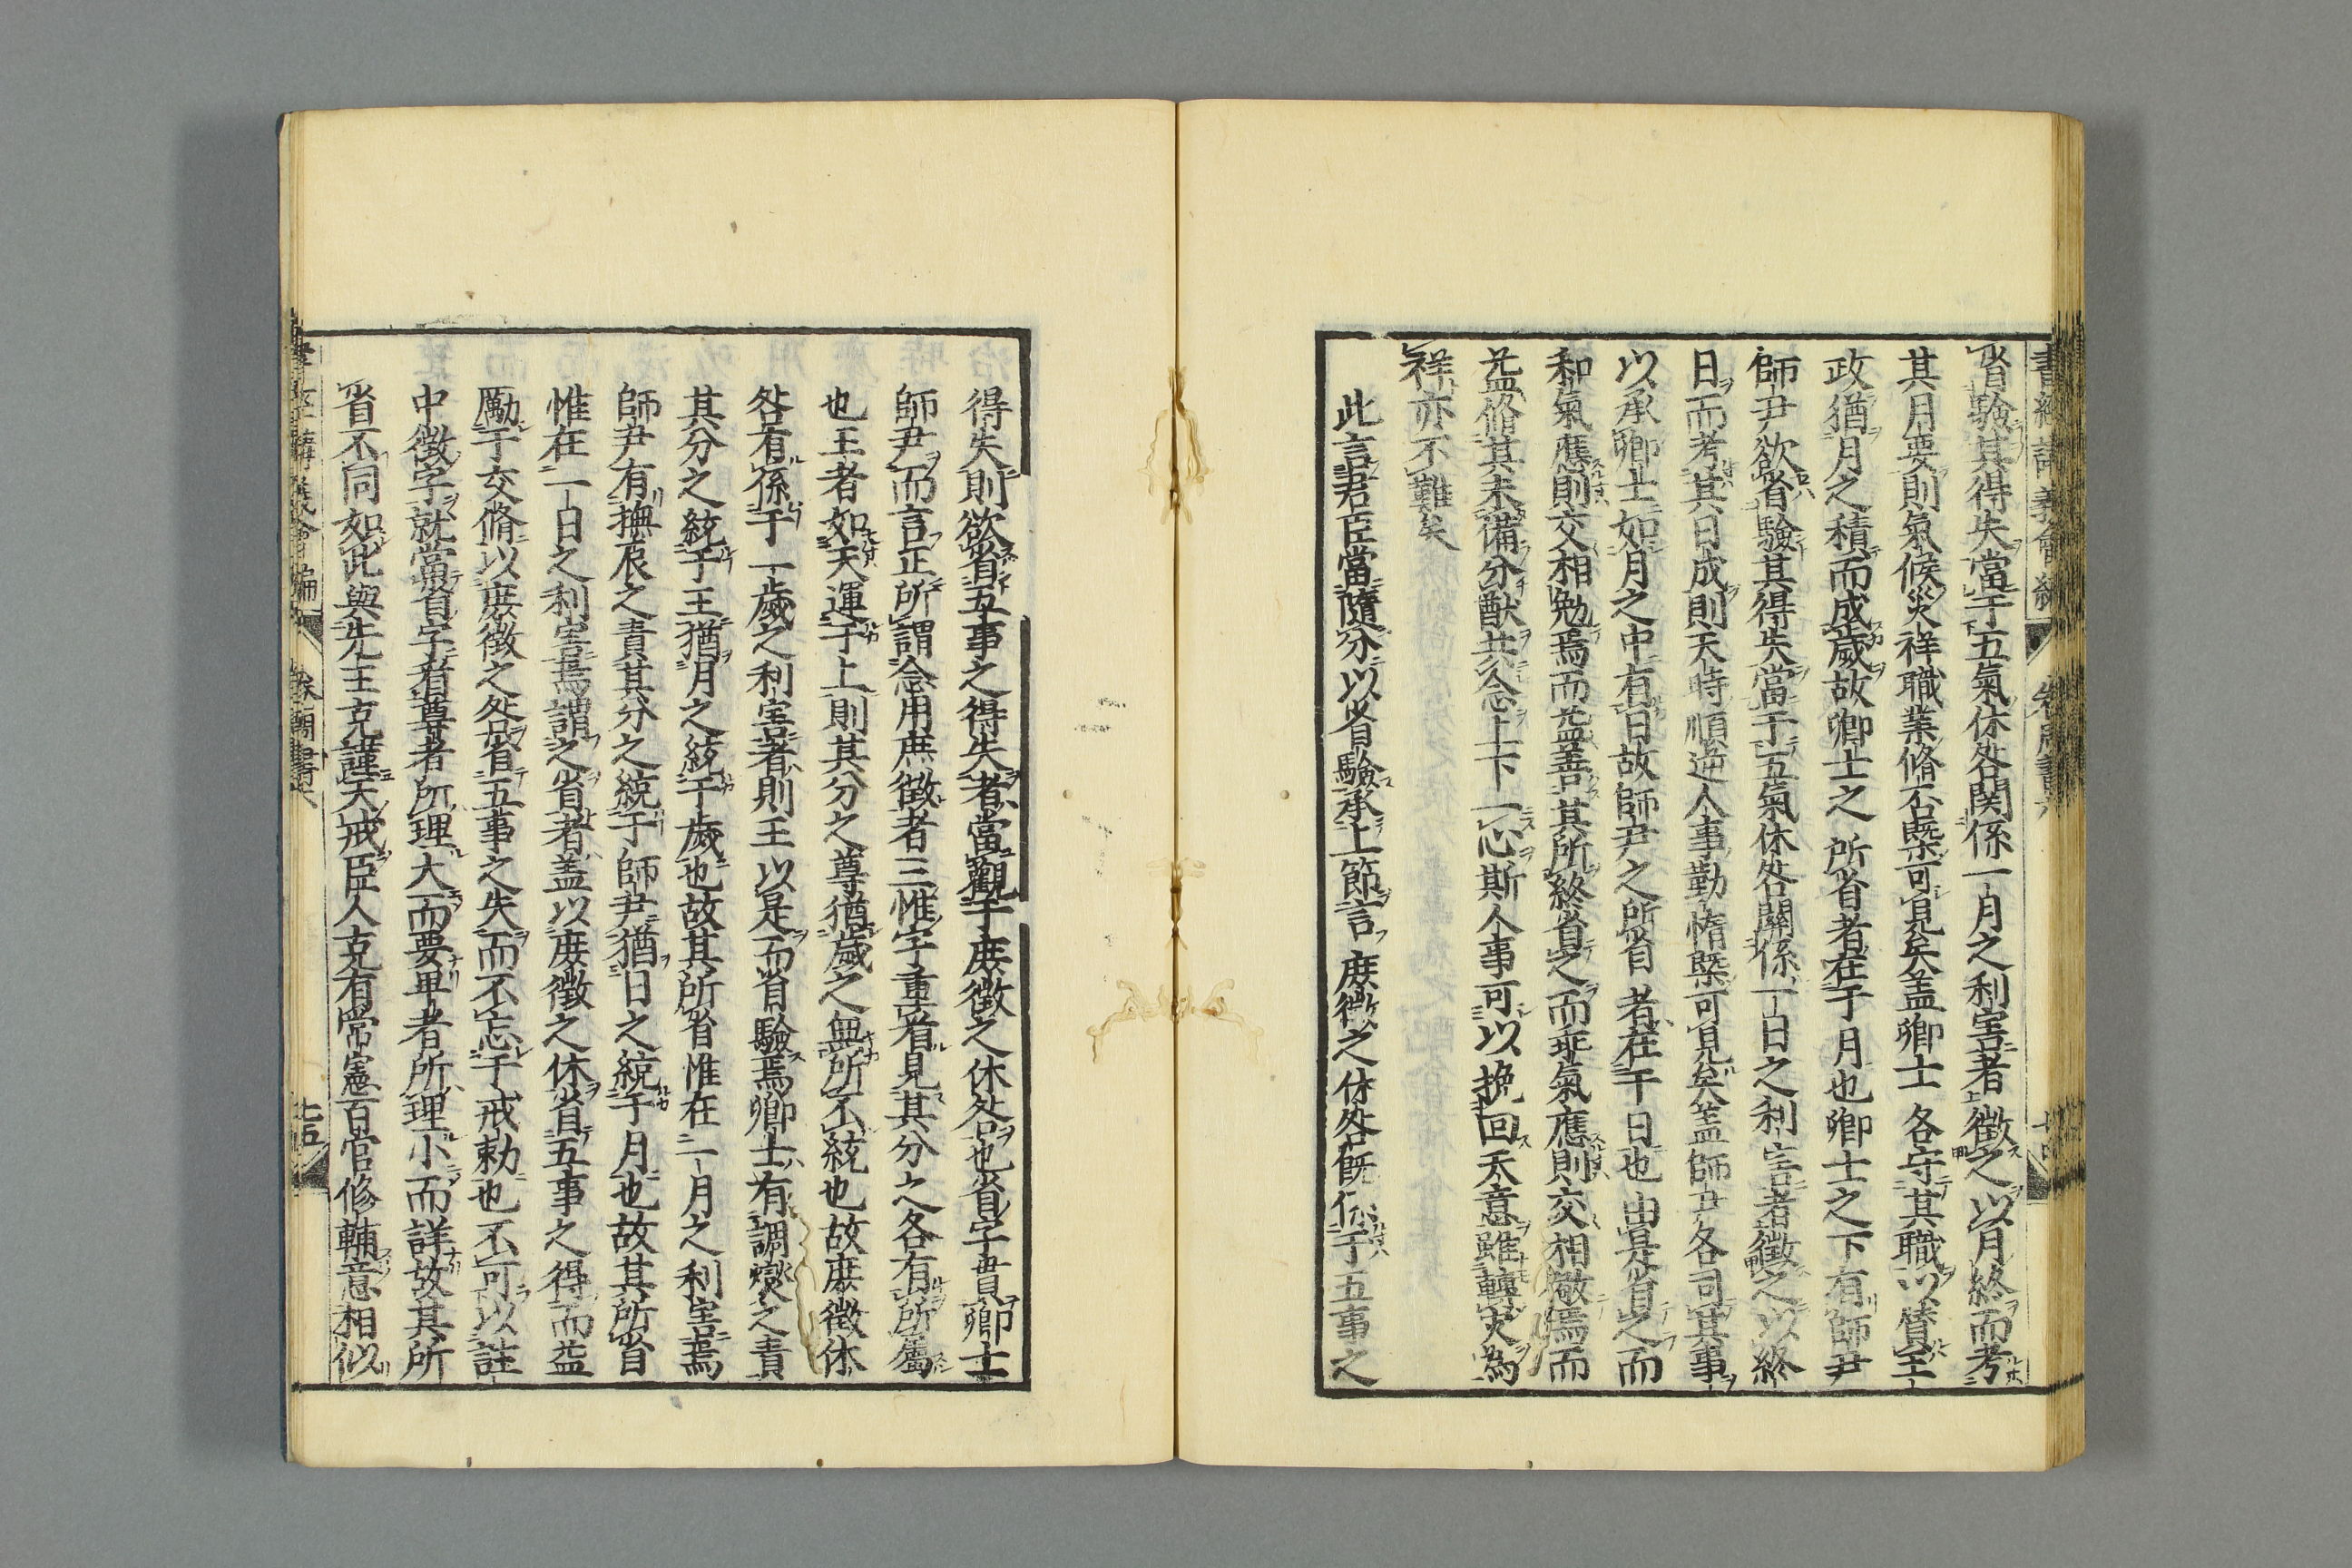 省驗其得失當于五氣休咎関係一月之利害者徴之以月終而考
其月要則氣候災祥職業脩否槩可見矣盖卿士各守其職以賛王
政猶月之積而成歳故卿士之所省者在于月也卿士之下有師尹
師尹欲省驗其得失當于五氣休咎關係一日之利害者徴之以終
日而考其日成則天時順逆人事勤惰槩可見矣盖師尹各司其事
以承卿士如月之中有日故師尹之所省者在于日也由是省之而
和氣應則交相勉焉而益善其所終省之而乖氣應則交相儆焉而
益脩其未備分猷共念上下一心斯人事可以挽回天意雖轉灾為
祥亦不難矣
此言君臣當隨分以省驗承上節言庶徴之休咎既係于五事之
得失則欲省五事之得失者當觀于庶徴之休咎也省字貫卿士
師尹而言正所謂念用庶徴者三惟字重看見其分之各有所屬
也王者如天運于上則其分之尊猶歳之無所不統也故庶徴休
咎有係于一歳之利害者則王以是而省驗焉卿士有調燮之責
其分之統于王猶月之統于歳也故其所省惟在一月之利害焉
師尹有撫辰之責其分之統于師尹猶日之統于月也故其所省
惟在一日之利害焉謂之省者盖以庶徴之休省五事之得而益
勵于交脩以庶徴之咎省五事之失而不忘于戒勅也不可以註
中徴字就當省字者尊者所理大而要卑者所理小而詳故其所
省不同如此與先王克謹天戒臣人克有常憲百官修輔意相似